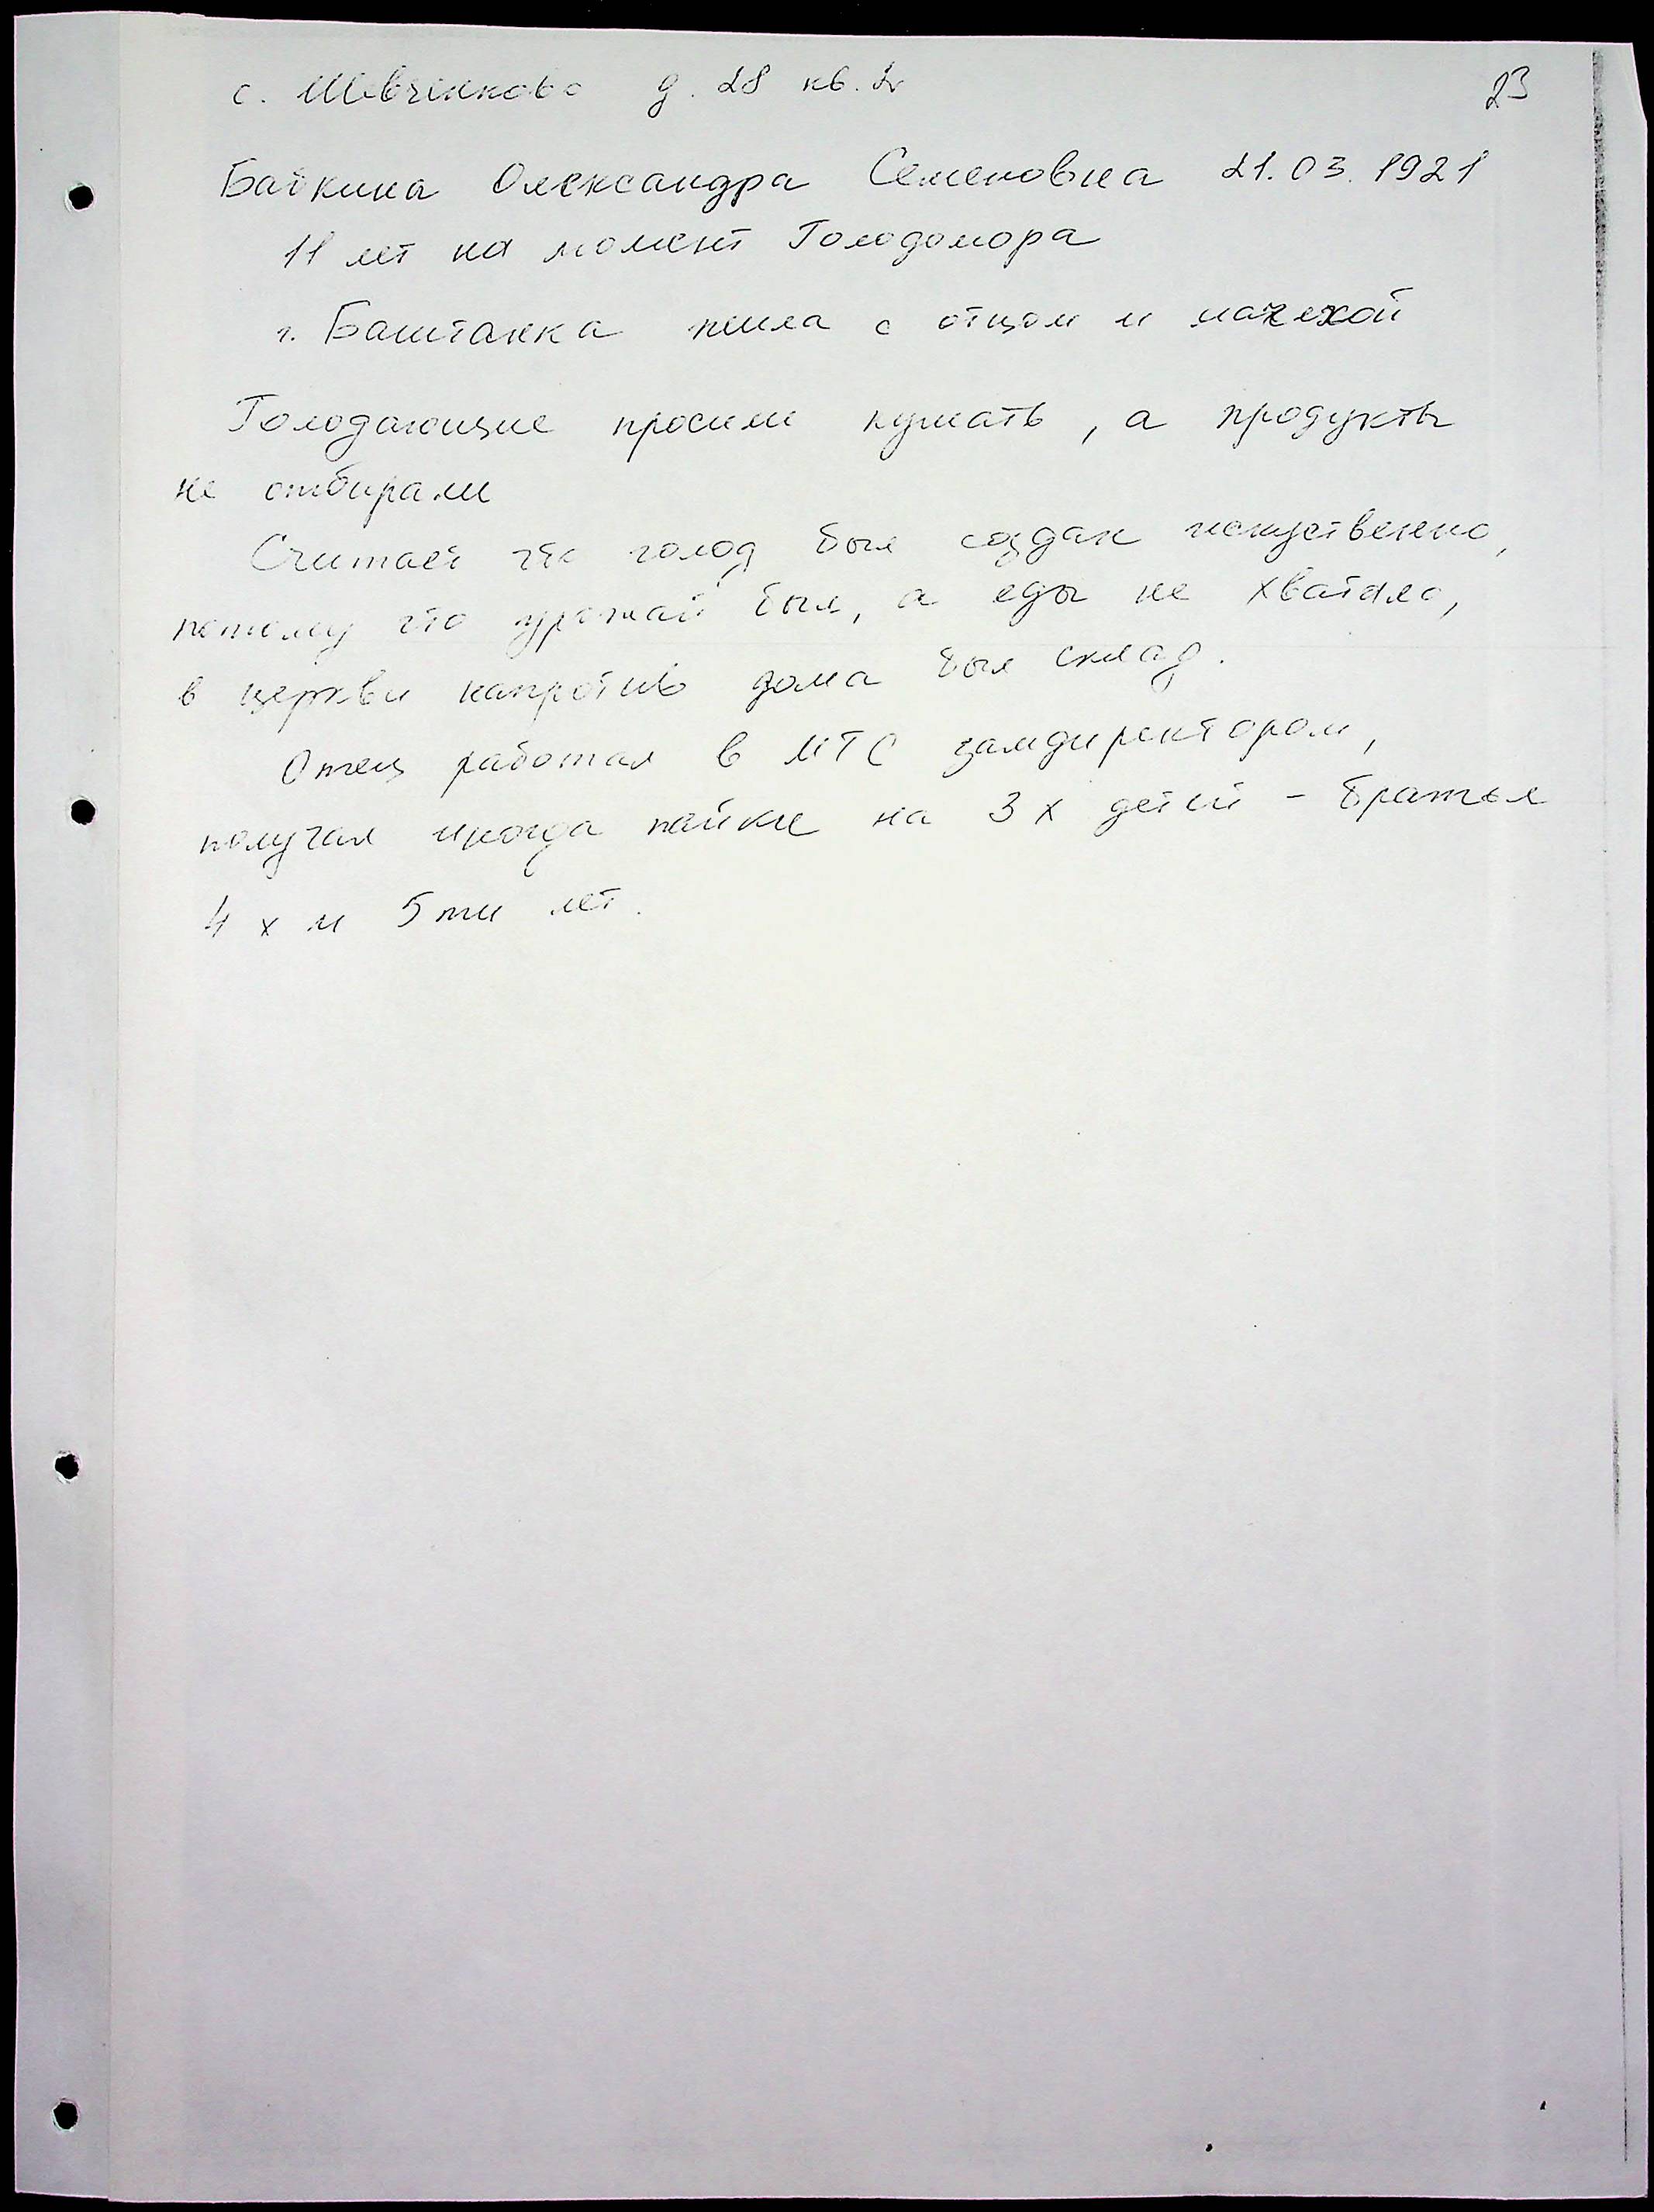 с. Шевченково д. 28 кв. 2
23
Байкина Олександра Семеновна 21.03.1921
11 лет на момент Голодомора
г. Баштанка жила с отцом и мачехой
Голодающие просили кушать, а продукты
не отбирали
Считает что голод был создан искуственно,
потому что урожай был, а еды не хватало,
в церкви напротив дома был склад.
Отец работал в МТС замдиректором,
получал иногда пайки на 3х детей - братья
4х и 5ти лет.